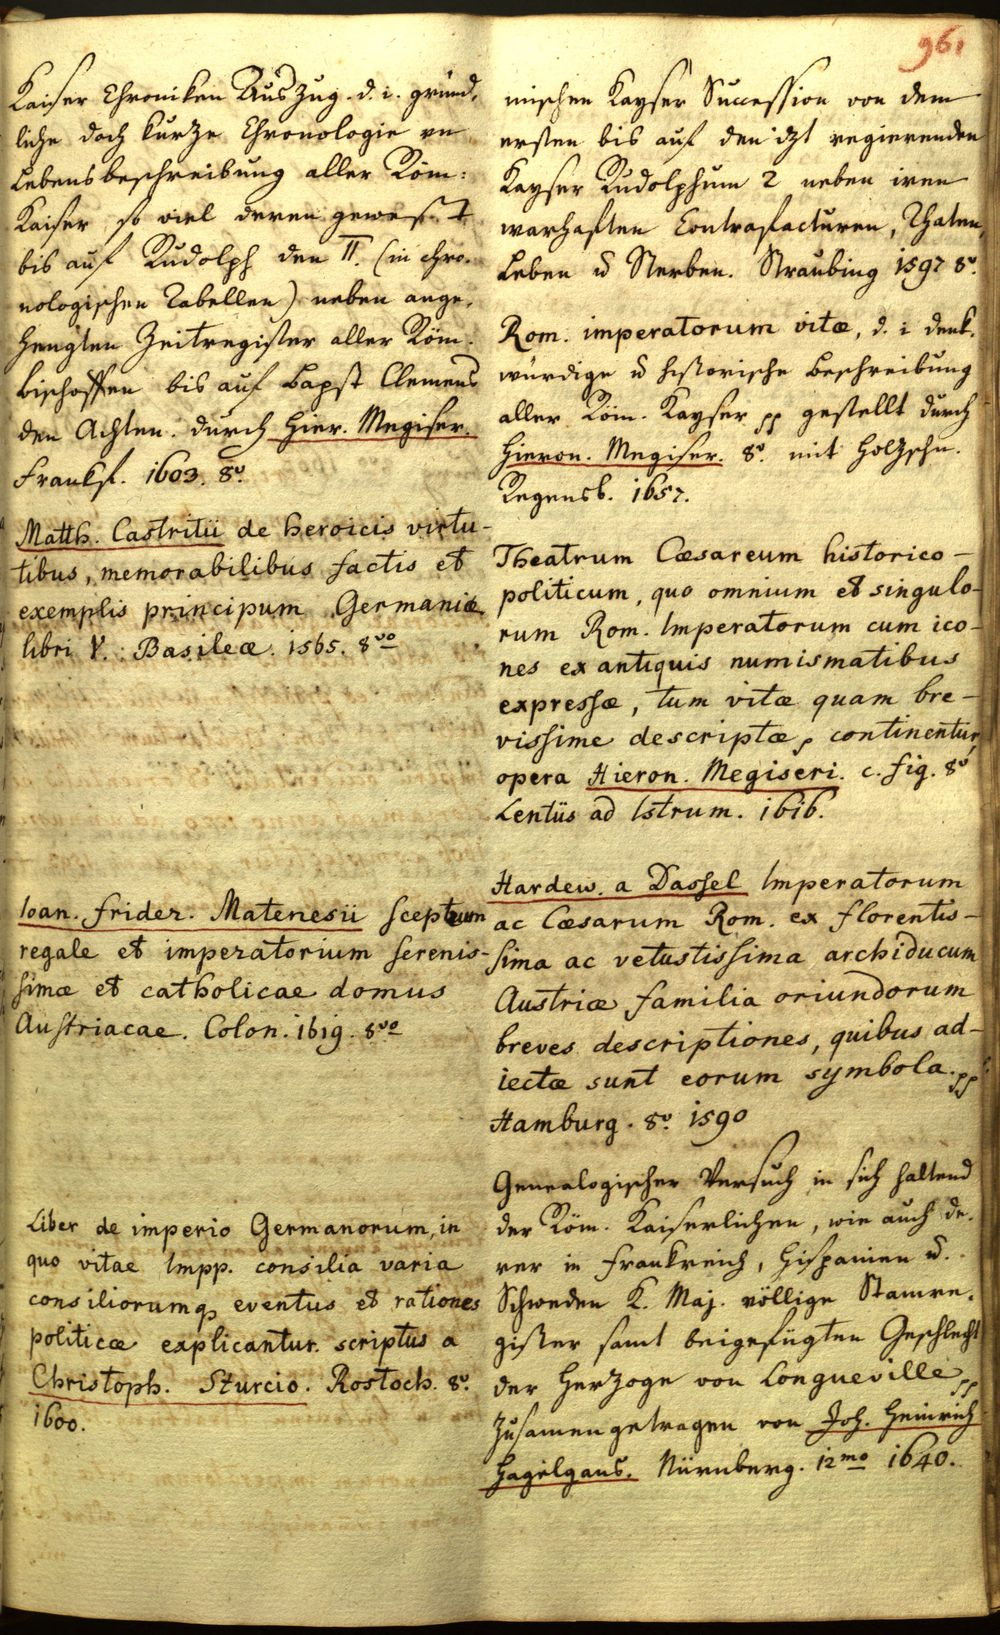 96.
Kaiser Chroniken Auszug. d. i. gründ,
liche doch kurze Chronologie vn
Lebensbeschreibung aller Röm:
Kaiser so viel deren gewest
bis auf Rudolph den II. (in chro,
nologischen Tabellen) neben ange,
hengten Zeitregister aller Röm.
Bischoffen bis auf Bapst Clemens
den Achten. durch Hier. Megiser.
Frankf. 1603. 8º.
Matth. Castritii de heroicis virtu-
tibus, memorabilibus factis et
exemplis principum Germaniæ
libri V. Basileæ. 1565. 8vo
Ioan. Frider. Matenesii sceptrum
regale et imperatorium serenis-
simæ et catholicae domus
Austriacae. Colon. 1619. 8vo
Liber de imperio Germanorum, in
quo vitae Impp. consilia varia
consiliorumq; eventus et rationes
politicæ explicantur. scriptus a
Christoph. Sturcio. Rostoch. 8º.
1600.
mischen Kayser Succession von dem
ersten bis auf den izt regierenden
Kayser Rudolphum 2 neben iren
warhaften Contrafacturen, Thaten,
Leben u Sterben. Straubing 1597 8º.
Rom. imperatorum vitæ, d. i denk,
würdige u historische Beschreibung
aller Röm. Kayser pp gestellt durch
Hieron. Megiser. 8º. mit Holzschn.
Regensb. 1657.
Theatrum Cæsareum historico-
politicum, quo omnium et singulo-
rum Rom. Imperatorum cum ico-
nes ex antiquis numismatibus
expressæ, tum vitæ quam bre-
vissime descriptæ, continentur,
opera Hieron. Megiseri. c. fig. 8º
Lentiis ad Istrum. 1616.
Hardew. a Dassel Imperatorum
ac Cæsarum Rom. ex florentis-
sima ac vetustissima archiducum
Austriæ familia oriundorum
breves descriptiones, quibus ad-
iectæ sunt eorum symbola. pp
Hamburg. 8º. 1590
Genealogischer Versuch in sich haltend
der Röm. Kaiserlichen, wie auch de,
rer in Frankreich, Hispanien u.
Schweden K. Maj. völlige Stamre,
gister samt beigefügten Geschlecht
der Herzoge von Longueville pp
zusamen getragen von Joh. Heinrich
Hagelgans. Nürnberg. 12mo 1640.